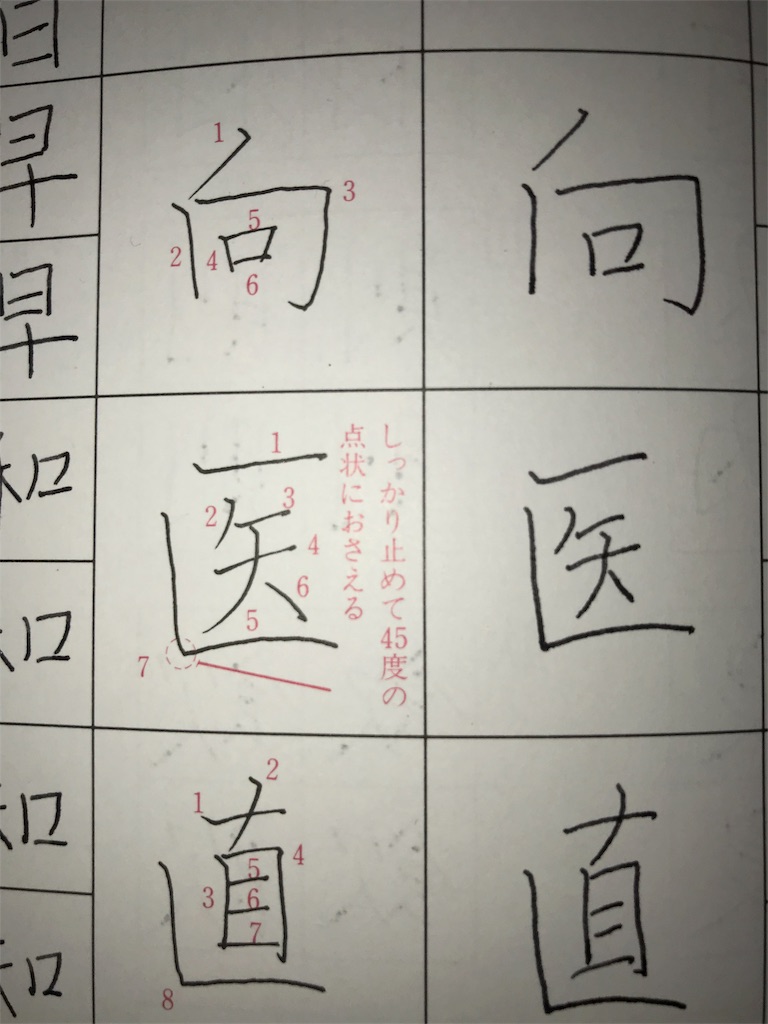 向
医
直
向
1
2
3
4
5
6
医
1
2
3
4
5
6
7
しっかり止めて45度の
点状におさえる
直
1
2
3
4
5
6
7
8
早
早